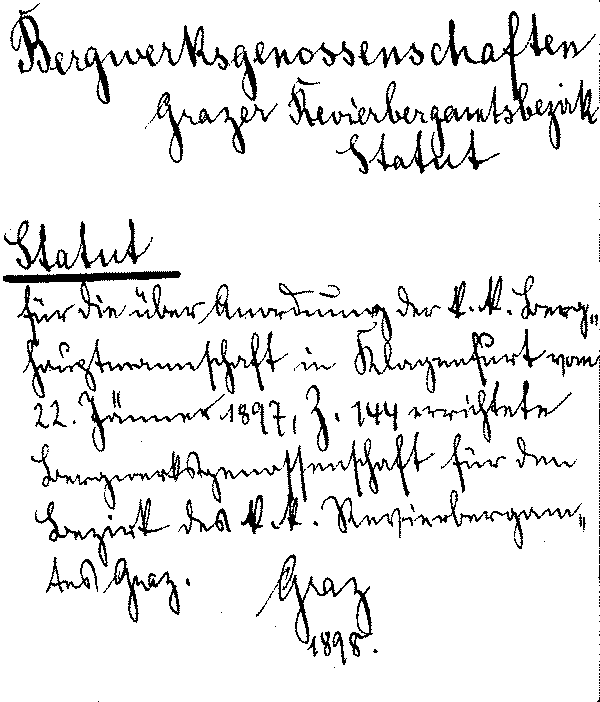 Bergwerksgenossenschaften
Grazer Revierbergamtsbezirk
Statut
Statut
für die über Anordnung der k. k. Berg„
hauptmannschaft in Klagenfurt vom
22. Jänner 1897, Z. 144 errichtete
Bergwerksgenossenschaft für den
Bezirk des k. k. Revierbergam„
tes Graz. Graz
1898.